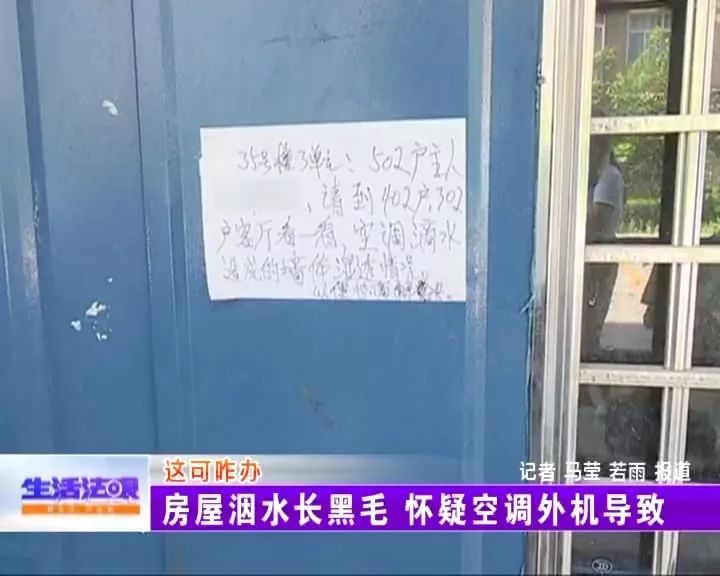 35号楼3单元：502户主人
、请到402户302
户客厅看一看，空调滴水
造成的墙体湿透情况。
以便协商解决。
这可咋办
记者 马莹 若雨 报道
生活法眼
房屋洇水长黑毛 怀疑空调外机导致